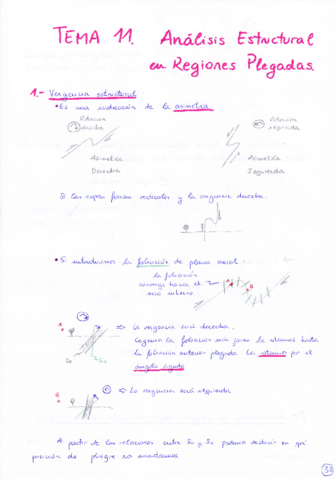 TEMA 11. Análisis Estructural
en Regiones Plegadas.
1.- Vergencia estructural
• Es una indicación de la asimetría
Rotación
derecha
Rotación
izquierda
Asimetría
Derecha
Asimetría
Izquierda
Si las capas fueran verticales y la vergencia derecha.
• Si introducimos la foliación de plano axial
la foliación
converge hacia el
arco interno
⇒ La vergencia será derecha.
Cogemos la foliación más joven la rotamos hasta
la foliación anterior plegada. La rotamos por el
ángulo agudo
⇒ La vergencia será izquierda
A partir de las relaciones entre S₀ y S₁, podemos deducir en qué
posición de pliegue nos encontramos